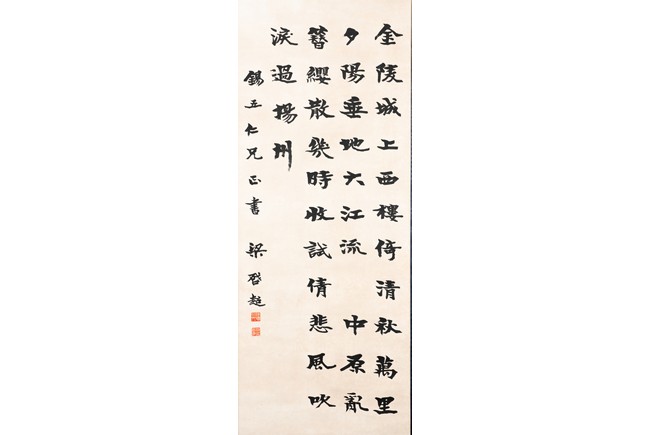 金陵城上西樓倚清秋萬里
夕陽垂地大江流　中原亂
簪纓散幾時收試倩悲風吹
淚過揚州
錫五仁兄正書　梁啓超